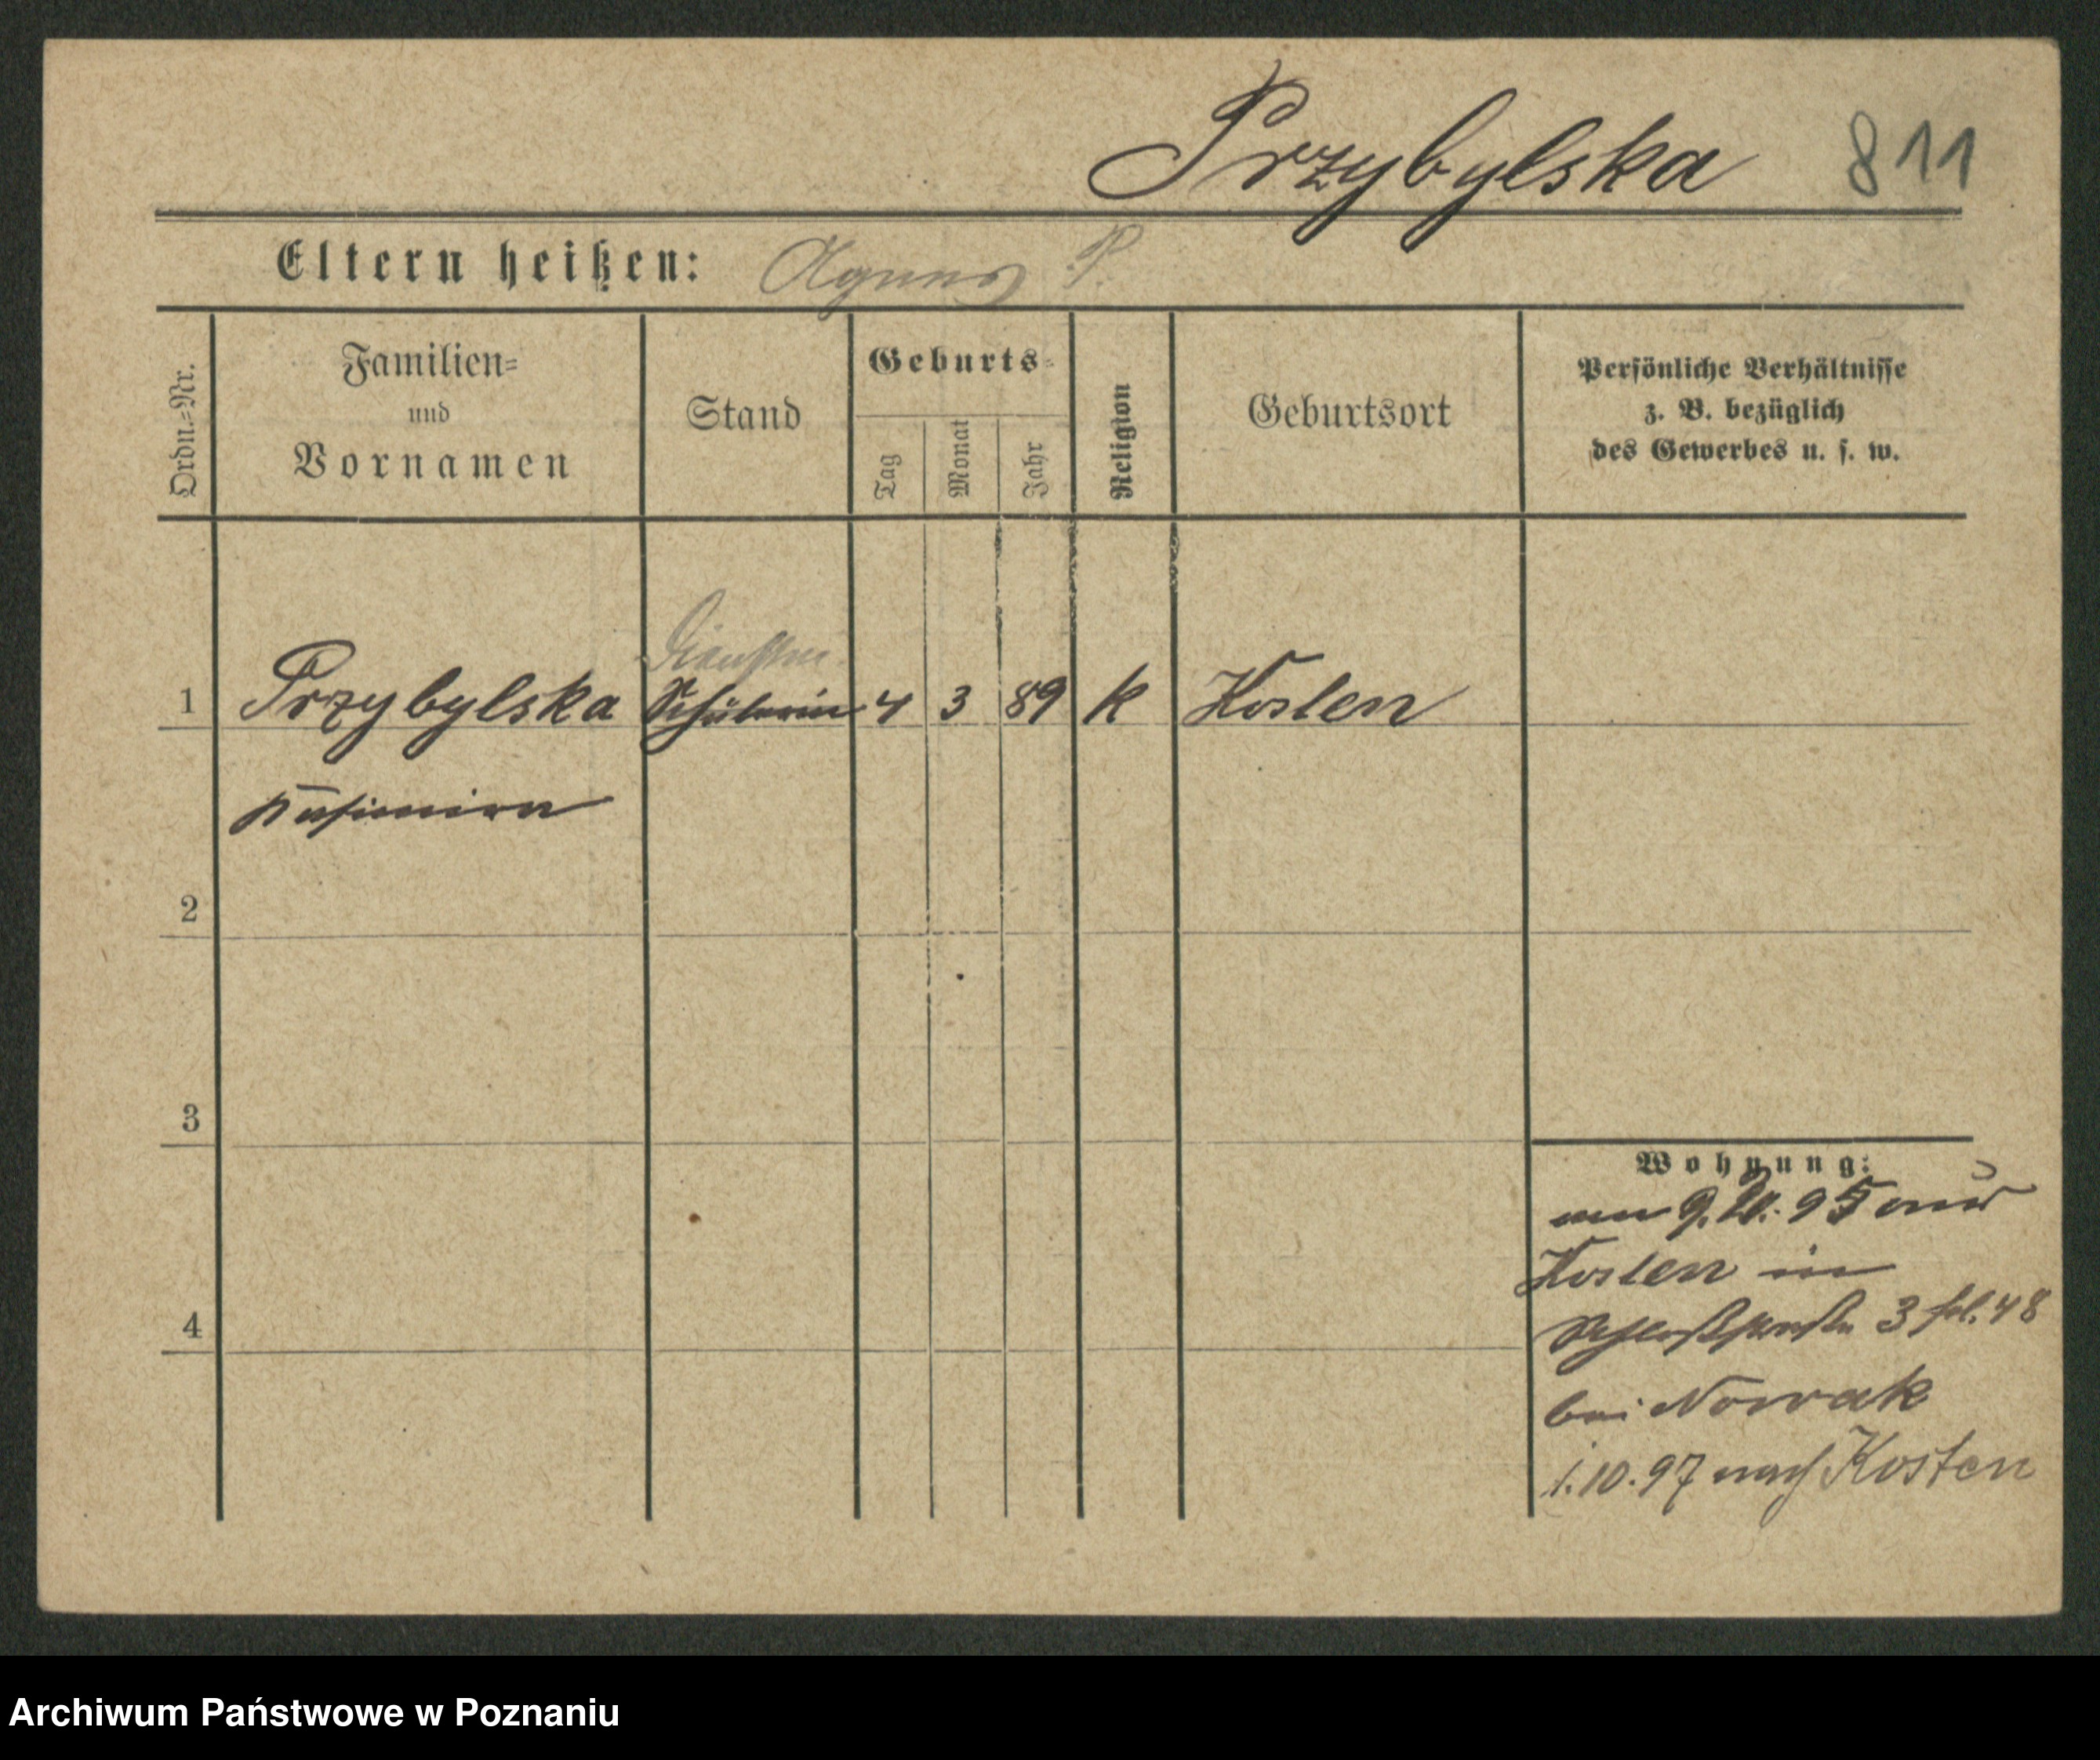 Przybylska 811
Eltern heißen: Agnes P.
Ordn.=Nr.
Familien=
und
Vornamen
Stand
Geburts=
Tag
Monat
Jahr
Religion
Geburtsort
Persönliche Verhältnisse
z. B. bezüglich
des Gewerbes u. s. w.
1 Przybylska Schülerin 4 3 89 k Kosten
Kasimira
2
3
4
Wohnung:
am 9. 95 aus
Kosten in
Schloßstraße 3 fol. 48
bei Nowak
1.10.97 nach Kosten
Archiwum Państwowe w Poznaniu